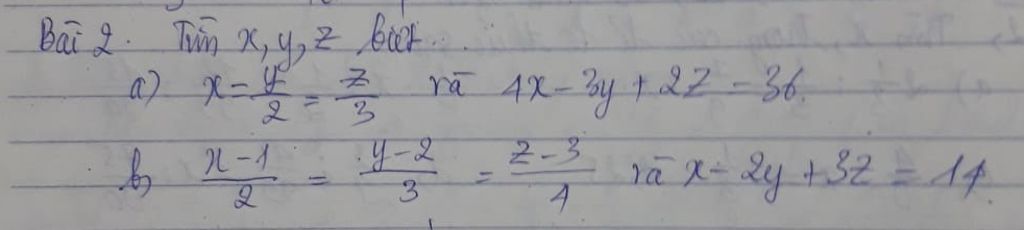 Bài 2. Tìm x, y, z biết :
a) x = y/2 = z/3 và 4x - 3y + 2z = 36.
b) (x-1)/2 = (y-2)/3 = (z-3)/4 và x - 2y + 3z = 14.